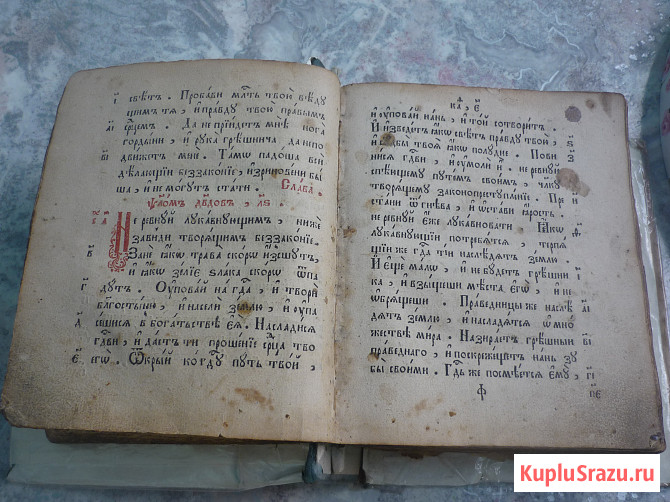 і҃ свѣтъ . Пробави млⷭть твою вѣду
щимъ тѧ , и҆ правду твою правымъ
а҃і срⷣцемъ . Да не прїидетъ мнѣ нога
гордыни , и҆ рука грѣшнича да непо
в҃і движетъ мнѣ . Тамѡ падоша вси
дѣлающїи беззаконїе , и҆зриновени бы
ша , и҆ не могутъ стати . Слава .
Ѱ҆аломъ дв҃довъ , л҃ѕ .
а҃ Не ревнуй лукавнующимъ , ниже
завиди творѧщимъ беззаконїе .
в҃ Зане ꙗкѡ трава скорѡ изсшутъ ,
и҆ ꙗкѡ зелїе злака скорѡ ѿпа
г҃ дутъ . Оу҆повай на гдⷭа , и҆ твори
благостыню , и҆ насели землю , и҆ оу҆па
д҃ сешисѧ в богатьствѣ еѧ . Насладисѧ
гдⷭви , и҆ дастъ ти прошенїе срⷣца тво
є҃ єгѡ . Ѿкрый ко гдⷭу путь твой ,
к҃а , є҃
и҆ оу҆повай нань , и҆ той сотворитъ .
И҆ изведетъ ꙗкѡ свѣтъ правду твою , ѕ҃
и҆ судбы твоѧ ꙗкѡ полудне . Пови з҃
нисѧ гдⷭви , и҆ оу҆моли и҆ . не ревнуй
спѣющему путемъ своимъ , чл҃ку
творѧщему законопреступленїе . Пре и҃
стани ѿ гнѣва , и҆ ѡстави ꙗрость .
не ревнуй еже лукавновати . Ꙗкѡ , ѳ҃
лукавнующїи потребѧтсѧ , терпѧ
щїи же гдⷭа ти наслѣдѧтъ землю .
И҆ еще малѡ , и҆ не будетъ грѣшни і҃
ка , и҆ взыщеши мѣста егѡ , и҆ не
ѡбрѧщеши . Праведницы же наслѣ а҃і
дѧтъ землю , и҆ насладѧтсѧ ѡ мно
жествѣ мира . Назираетъ грѣшный в҃і
праведнаго , и҆ поскрежещетъ нань зу
бы своими . Гдⷭь же посмѣетсѧ ему , г҃і
ф пе
KupluSrazu.ru